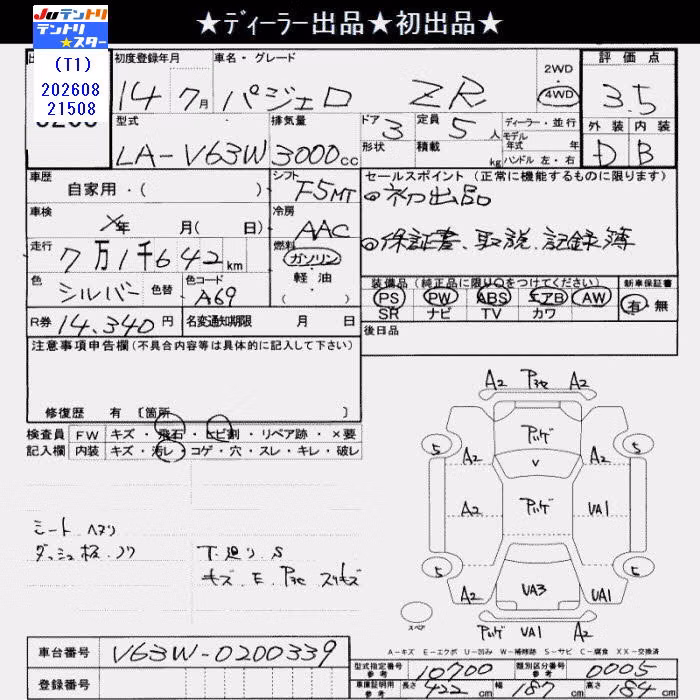 ★ディーラー出品★初出品★
Juテントリ
テントリ
★スター
(T1)
202608
21508
初度登録年月 車名・グレード 2WD 4WD 評価点
14年 7月 パジェロ ZR 3.5
型式 排気量 ドア 3 定員 5人 ディーラー・並行
モデル
年式 年
形状 積載 kg ハンドル 左・右
外装 内装
LA-V63W 3000cc D B
車歴 シフト F5MT
自家用・( )
車検 冷房 AAC
×年 月( 日)
走行 7万1千642km
燃料 ガソリン
軽油
( )
色 シルバー 色替 色コード A69
R券 14,340円 名変通知期限 月 日
セールスポイント(正常に機能するものに限ります)
初出品
保証書、取説、記録簿
装備品(純正品に限り○をつけてください) 新車保証書
PS PW ABS エアB AW 有・無
SR ナビ TV カワ
後日品
注意事項申告欄(不具合内容等は具体的に記入して下さい)
修復歴 有 〔箇所 〕
検査員 FW キズ・飛石・ヒビ割・リペア跡・×要
記入欄 内装 キズ・汚レ・コゲ・穴・スレ・キレ・破レ
シート ヘタリ
ダッシュ
下廻り S
キズ
A2 A2
5 A2 A2 5
V
A2 UA1
5 A2 UA3 UA1 5
スペア UA1 A2
A-キズ E-エクボ U-凹み W-補修跡 S-サビ C-腐食 XX-交換済
車台番号 V63W-0200339
登録番号
型式指定番号 参考 10700 類別区分番号 参考 0005
車庫証明用 参考 長さ 422cm 幅 187cm 高さ 184cm